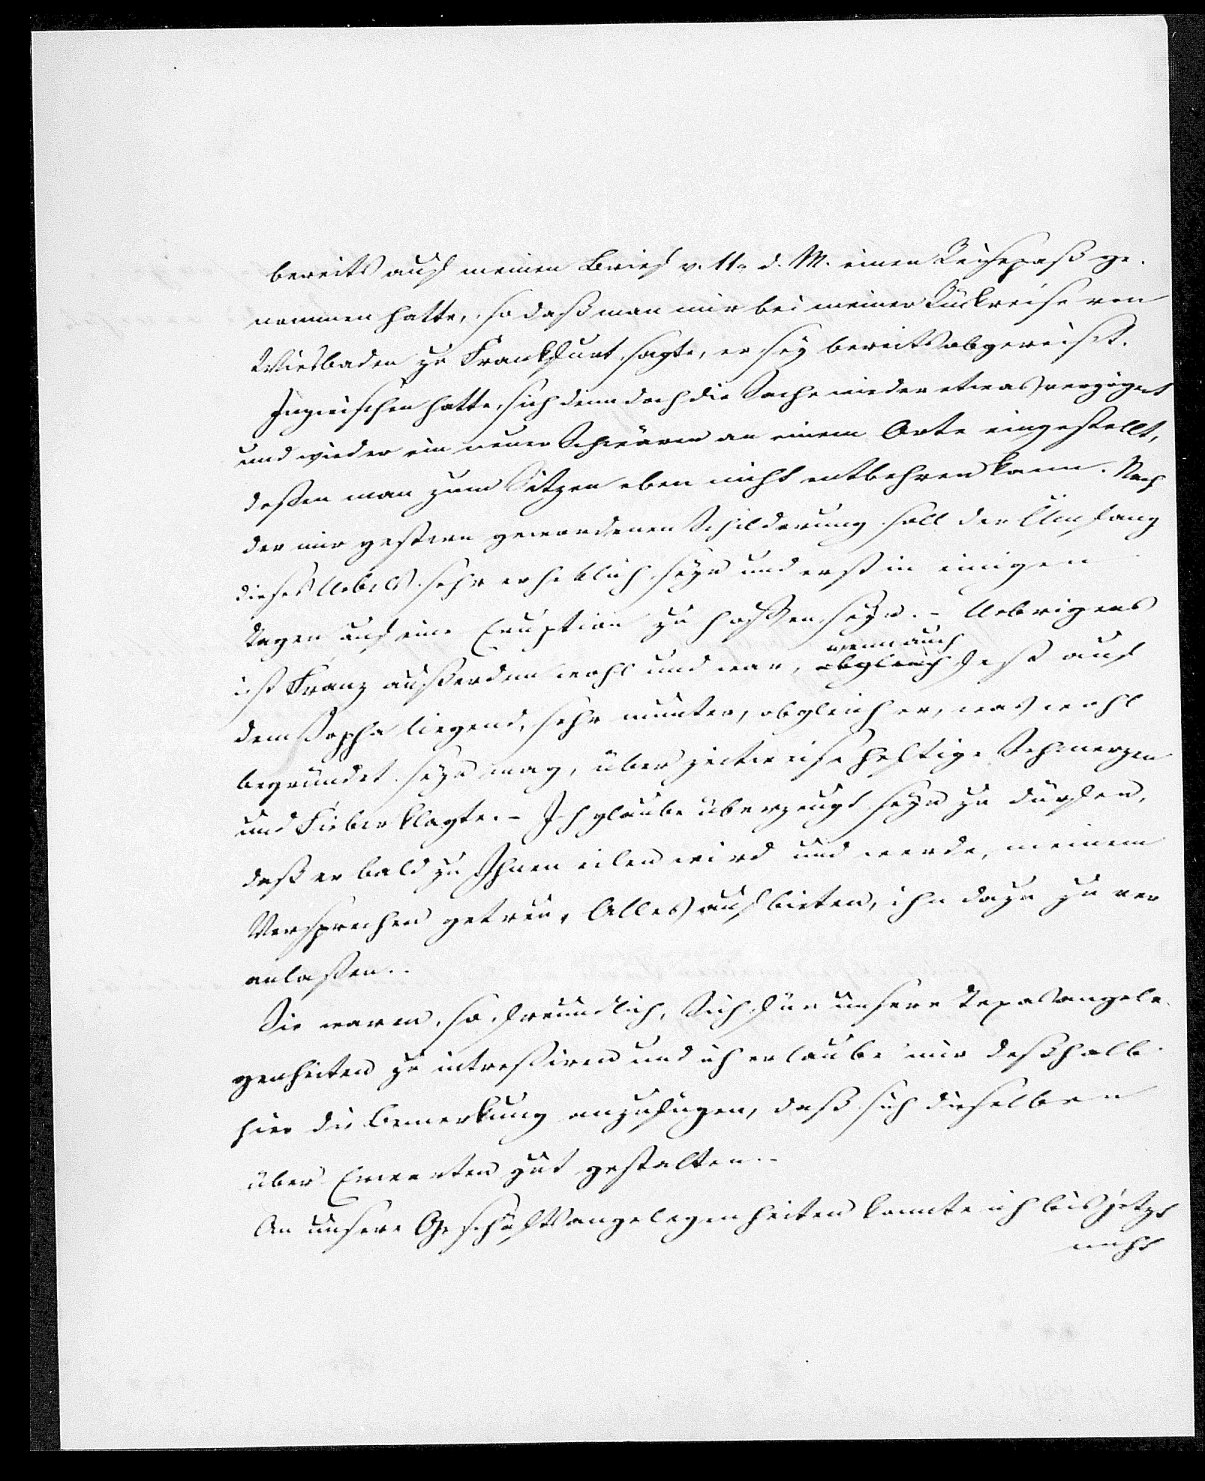 bereits auf meinen Brief v. 11. d. M. einen Reisepaß ge-
nommen hatte, so daß man mir bei meiner Rückreise von
Wiesbaden zu Frankfurt sagte, er sey bereits abgereis't.
Inzwischen hatte sich denn doch die Sache wieder etwas verzögert
und wieder ein neuer Schwären an einem Orte eingestellt,
deßen man zum Sitzen eben nicht entbehren kann. Nach
der mir gestern gewordenen Schilderung soll der Umfang
dieses Uebels sehr erheblich seyn und erst in einigen
Tagen auf eine Eruption zu hoffen seyn. – Uebrigens
ist Franz außerdem wohl und war, wenn auch obgleich fest auf
dem Sopha liegend, sehr munter, obgleich er, was wohl
begründet seyn mag, über zeitweise heftige Schmerzen
und Fieber klagte. – Ich glaube überzeugt seyn zu dürfen,
daß er bald zu Ihnen eilen wird und werde, meinem
Versprechen getreu, Alles aufbieten, ihn dazu zu ver
anlaßen. –
Sie waren so freundlich, Sich für unsere Texasangele-
genheiten zu intreßiren und ich erlaube mir deßhalb
hier die Bemerkung anzufügen, daß sich dieselben
über Erwarten gut gestalten. –
An unsere Geschäftsangelegenheiten konnte ich bis jetzt
nicht